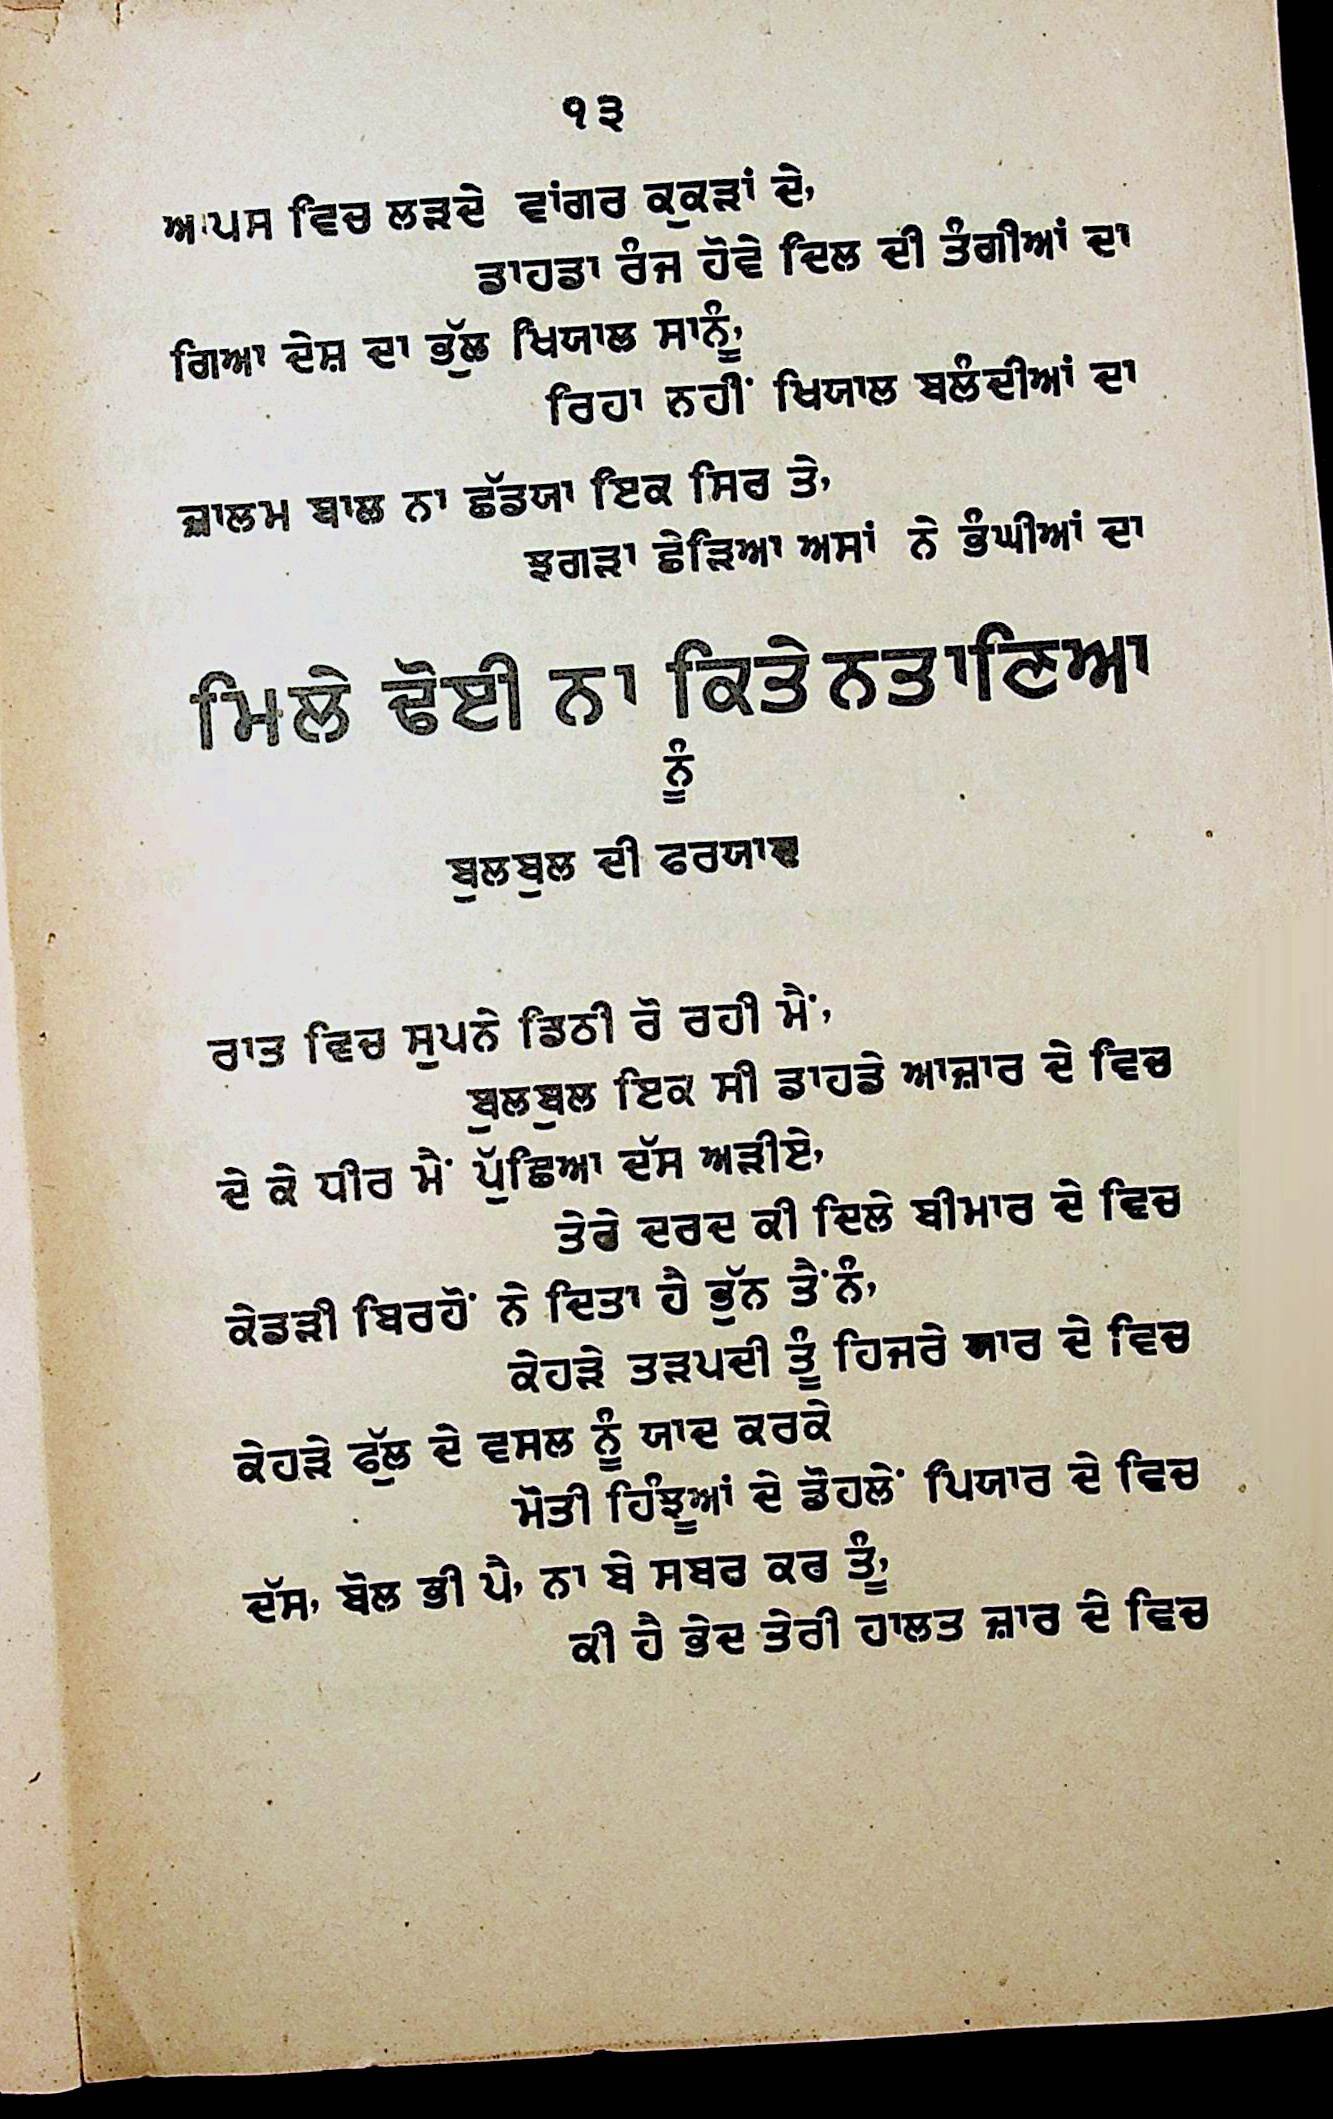 ੧੩
ਆਪਸ ਵਿਚ ਲੜਦੇ ਵਾਂਗਰ ਕੁਕੜਾਂ ਦੇ,
ਡਾਹਡਾ ਰੰਜ ਹੋਵੇ ਦਿਲ ਦੀ ਤੰਗੀਆਂ ਦਾ
ਗਿਆ ਦੇਸ਼ ਦਾ ਭੁੱਲ ਖਿਯਾਲ ਸਾਨੂੰ,
ਰਿਹਾ ਨਹੀਂ ਖਿਯਾਲ ਬਲੰਦੀਆਂ ਦਾ
ਜ਼ਾਲਮ ਬਾਲ ਨਾ ਛੱਡਯਾ ਇਕ ਸਿਰ ਤੇ,
ਝਗੜਾ ਛੇੜਿਆ ਅਸਾਂ ਨੇ ਭੰਘੀਆਂ ਦਾ
ਮਿਲੇ ਢੋਈ ਨਾ ਕਿਤੇ ਨਤਾਣਿਆ
ਨੂੰ
ਬੁਲਬੁਲ ਦੀ ਫਰਯਾਦ
ਰਾਤ ਵਿਚ ਸੁਪਨੇ ਡਿਠੀ ਰੋ ਰਹੀ ਮੈਂ,
ਬੁਲਬੁਲ ਇਕ ਸੀ ਡਾਹਡੇ ਆਜ਼ਾਰ ਦੇ ਵਿਚ
ਦੇ ਕੇ ਧੀਰ ਮੈਂ ਪੁੱਛਿਆ ਦੱਸ ਅੜੀਏ,
ਤੇਰੇ ਦਰਦ ਕੀ ਦਿਲੇ ਬੀਮਾਰ ਦੇ ਵਿਚ
ਕੇਡੜੀ ਬਿਰਹੋਂ ਨੇ ਦਿਤਾ ਹੈ ਭੁੱਨ ਤੈਂਨੰ,
ਕੇਹੜੇ ਤੜਪਦੀ ਤੂੰ ਹਿਜਰੇ ਯਾਰ ਦੇ ਵਿਚ
ਕੇਹੜੇ ਫੁੱਲ ਦੇ ਵਸਲ ਨੂੰ ਯਾਦ ਕਰਕੇ
ਮੋਤੀ ਹਿੰਝੂਆਂ ਦੇ ਡੋਹਲੇਂ ਪਿਯਾਰ ਦੇ ਵਿਚ
ਦੱਸ, ਬੋਲ ਭੀ ਪੈ, ਨਾ ਬੇ ਸਬਰ ਕਰ ਤੂੰ,
ਕੀ ਹੈ ਭੇਦ ਤੇਰੀ ਹਾਲਤ ਜ਼ਾਰ ਦੇ ਵਿਚ